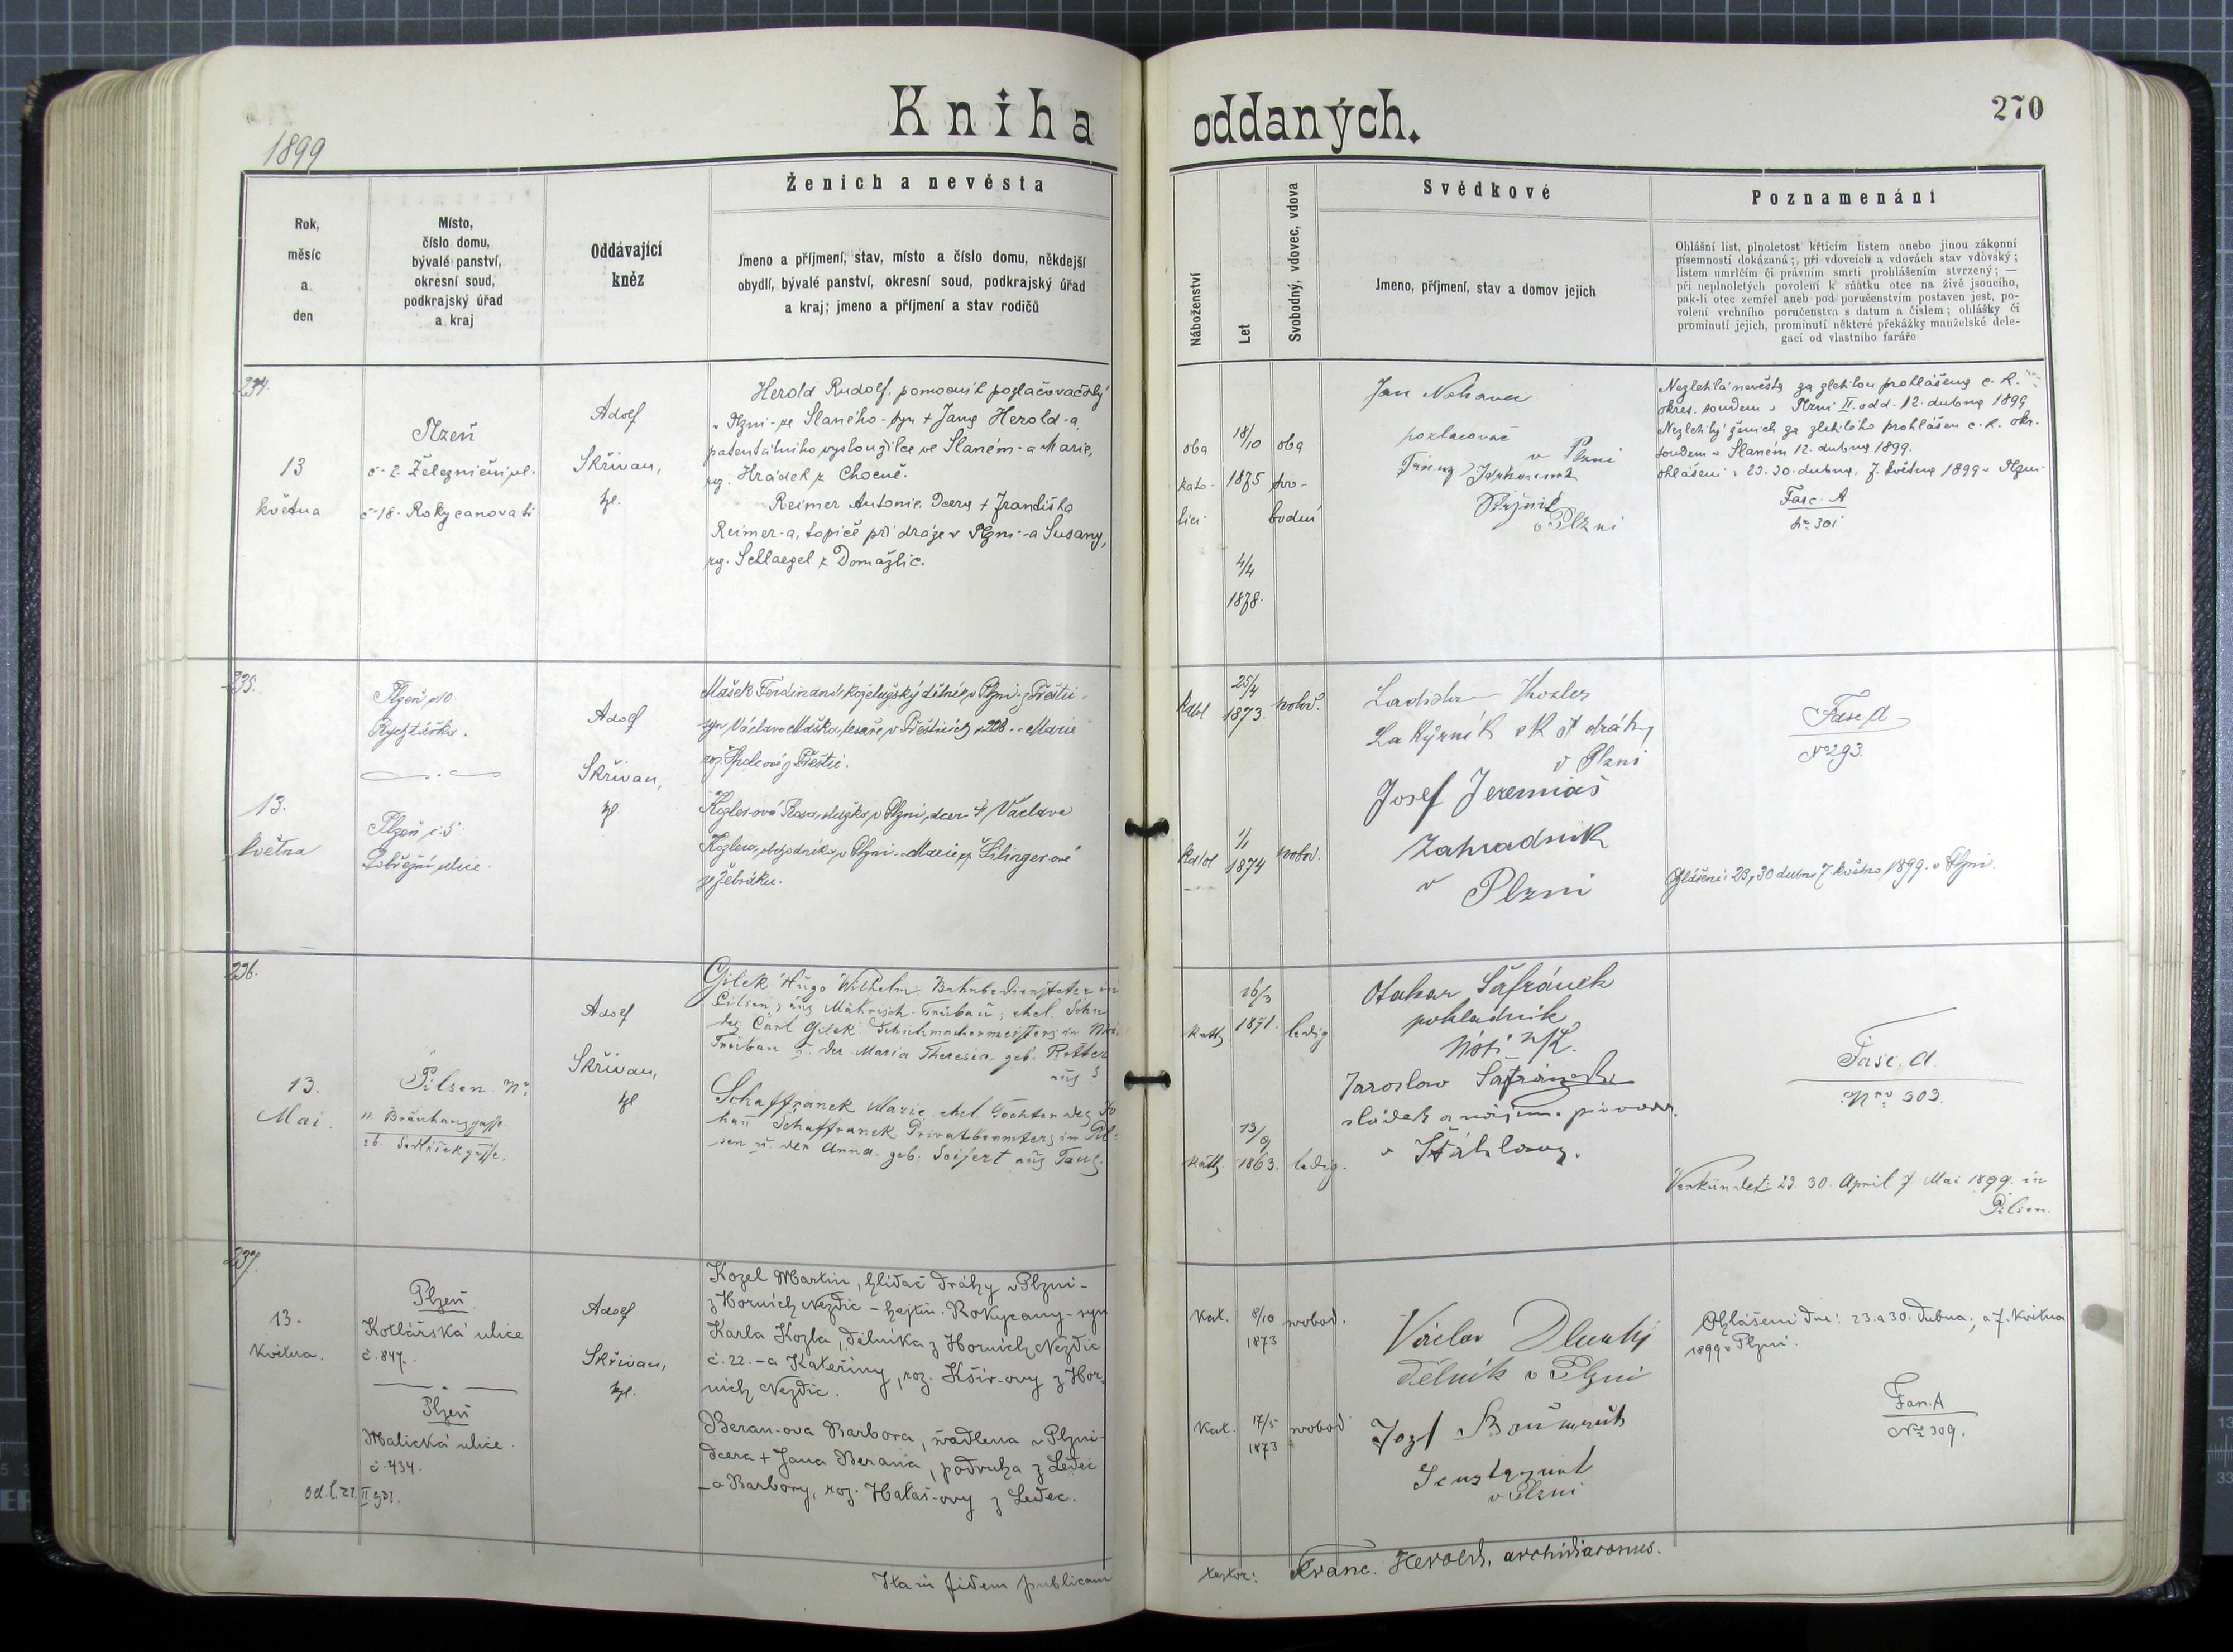 Kniha oddaných.
270
1899
Rok,
měsíc
a
den
Místo,
číslo domu,
bývalé panství,
okresní soud,
podkrajský úřad
a kraj
Oddávající
kněz
Ženich a nevěsta
Jmeno a příjmení, stav, místo a číslo domu, někdejší
obydlí, bývalé panství, okresní soud, podkrajský úřad
a kraj; jmeno a příjmení a stav rodičů
Náboženství
Let
Svobodný, vdovec, vdova
Svědkové
Jmeno, příjmení, stav a domov jejich
Poznamenání
Ohlášní list, plnoletost křticím listem anebo jinou zákonní
písemností dokázaná; při vdovcích a vdovách stav vdovský;
listem umrlčím či právním smrti prohlášením stvrzený; —
při neplnoletých povolení k sňátku otce na živě jsoucího,
pak-li otec zemřel aneb pod poručenstvím postaven jest, po-
volení vrchního poručenstva s datum a číslem; ohlášky či
prominutí jejich, prominutí některé překážky manželské dele-
gací od vlastního faráře
234.
13
května
Plzeň
č. 2. Železniční ul.
č. 18. Rokycanova tř.
Adolf
Skřivan,
kpl.
Herold Rudolf, pomocník pozlačovačský
v Plzni - ze Slaného - syn + Jana Herold-a,
patentálního vysloužilce ve Slaném - a Marie,
roz. Hrádek z Chocně.
Reimer Antonie, dcera + Františka
Reimer-a, topiče při dráze v Plzni - a Susany,
roz. Schlaegel z Domažlic.
oba
kato-
líci
18/10
1875
4/4
1878.
oba
svo-
bodní
Jan Nohavec
pozlacovač
v Plzni
v Plzni
Nezletilá nevěsta za zletilou prohlášena c. k.
okres. soudem v Plzni II. odd. 12. dubna 1899
Nezletilý ženich za zletilého prohlášen c. k. okr.
soudem v Slaném 12. dubna 1899.
ohlášeni: 23. 30. dubna, 7. května 1899 v Plzni.
Fasc. A
No 301
235.
13.
května
Plzeň
Rychtářka.
Plzeň č. 5
Pobřežní ulice.
Adolf
Skřivan,
kpl.
Mašek Ferdinand, koželužský dělník v Plzni z Přeštic -
syn Václava Maška, tesaře v Přešticích č. 228. a Marie
roz. Špalcové z Přeštic.
Kozlerová Rosa, služka v Plzni, dcera + Václava
Kozlera, obchodníka v Plzni a Marie roz. Šilingerové
ze Žebráku.
Katol
25/4
1873.
svobod.
Katol
1/1
1874
svobod.
Ladislav Kozler
Lakýrník ck st dráhy
v Plzni
Josef Jeremiáš
Zahradník
v Plzni
Fasc A
No 293.
Ohlášeni: 23, 30 dubna 7. května 1899. v Plzni.
236.
13.
Mai.
Pilsen No
11. Bräuhausgasse.
26. Sedláčekgasse.
Adolf
Skřivan,
kpl
Gilek Hugo Wilhelm, Bahnbediensteter in
Pilsen, aus Mährisch-Trübau; ehel. Sohn
des Carl Gilek Schuhmachermeisters in Mäh.
Trübau u. der Maria Theresia, geb. Rotter
aus ?
Schaffranek Marie, ehel. Tochter des Jo
hann Schaffranek Privatbeamters in Pil-
sen u. der Anna, geb. Seifert aus Taus.
Kath
16/3
1871.
ledig
Kath
13/9
1863.
ledig.
Otakar Šafránek
pokladník
Jaroslav Šafránek
sládek a nájem. pivovaru.
v Štáhlavy.
Fasc. A.
Nro 303.
Verkündet: 23. 30. April 7 Mai 1899. in
Pilsen.
237.
13.
Května.
Plzeň.
Kotlářská ulice
č. 847.
Plzeň
Malická ulice.
č. 434.
Adolf
Skřivan,
kpl.
Kozel Martin, hlídač dráhy v Plzni -
z Horních Nezdic - hejtm. Rokycany - syn
Karla Kozla, dělníka z Horních Nezdic
č. 22. - a Kateřiny, roz. Kšír-ovy z Hor-
ních Nezdic.
Beran-ova Barbora, švadlena v Plzni -
dcera + Jana Berana, podruha z Ledec
- a Barbory, roz. Halaš-ovy z Ledec.
Kat.
8/10
1873
svobod.
Kat.
17/5
1873
svobod
Václav Dlouhý
dělník v Plzni
v Plzni
Ohlášeni dne: 23. a 30. dubna, a 7. května
1899 v Plzni.
Fasc. A
No 309.
Ita in fidem publicam
testor: Franc. Herold, archidiaconus.